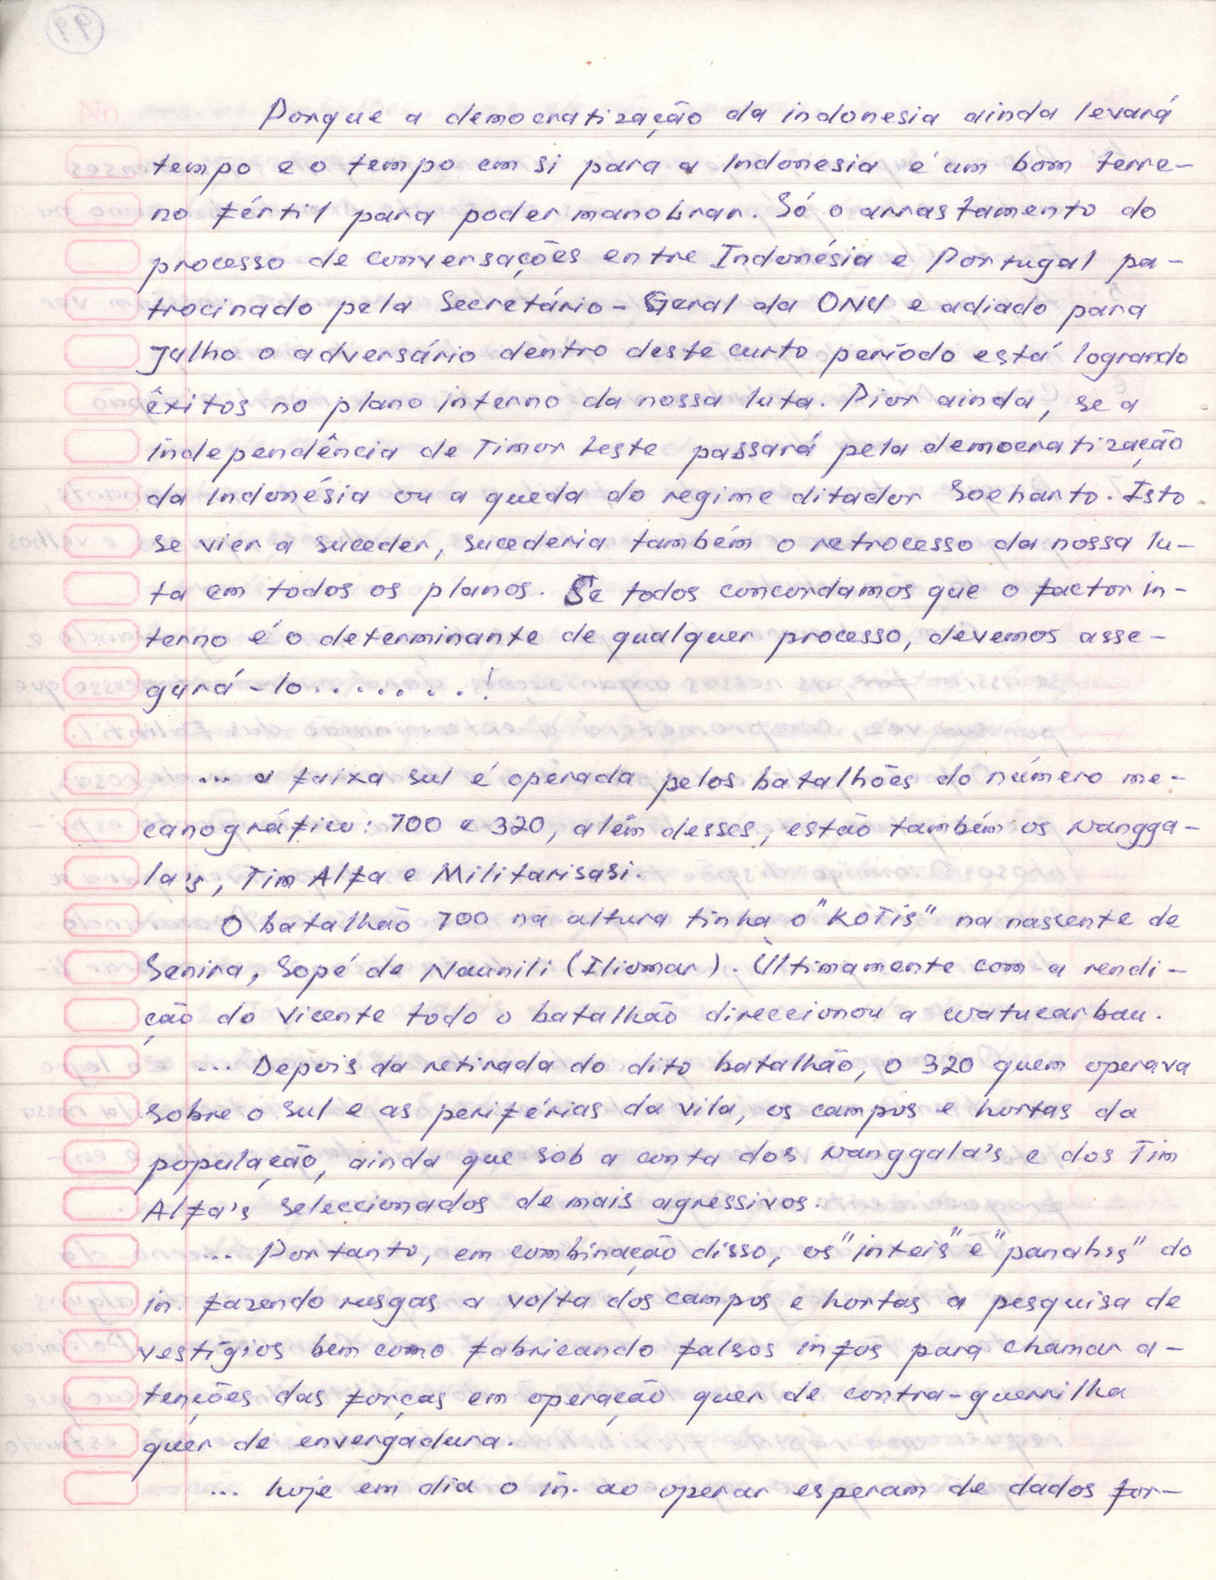 Porque a democratização da indonesia ainda levará
tempo e o tempo em si para a Indonesia é um bom terre-
no fértil para poder manobrar. Só o arrastamento do
processo de conversações entre Indonésia e Portugal pa-
trocinado pela Secretário-Geral da ONU e adiado para
Julho o adversário dentro deste curto período está logrando
êxitos no plano interno da nossa luta. Pior ainda, se a
independência de Timor Leste passará pela democratização
da Indonésia ou a queda do regime ditador Soeharto. Isto
se vier a suceder, sucederia também o retrocesso da nossa lu-
ta em todos os planos. Se todos concordamos que o factor in-
terno é o determinante de qualquer processo, devemos asse-
gurá-lo........!
... a faixa sul é operada pelos batalhões do número me-
canográfico: 700 e 320, além desses, estão também os Nangga-
la's, Tim Alfa e Militarisasi.
O batalhão 700 na altura tinha o "KOTIS" na nascente de
Senira, Sopé de Naunili (Iliomar). Ùltimamente com a rendi-
ção do Vicente todo o batalhão direccionou a watucarbau.
... Depois da retirada do dito batalhão, o 320 quem operava
sobre o sul e as periférias da vila, os campos e hortas da
população, ainda que sob a conta dos Nanggala's e dos Tim
Alfa's seleccionados de mais agressivos.
... Portanto, em combinação disso, os "inteis" e "panahss" do
in. fazendo rusgas a volta dos campos e hortas a pesquisa de
vestígios bem como fabricando falsos infos para chamar a-
tenções das forças em operação quer de contra-guerrilha
quer de envergadura.
... hoje em dia o in. ao operar esperam de dados for-